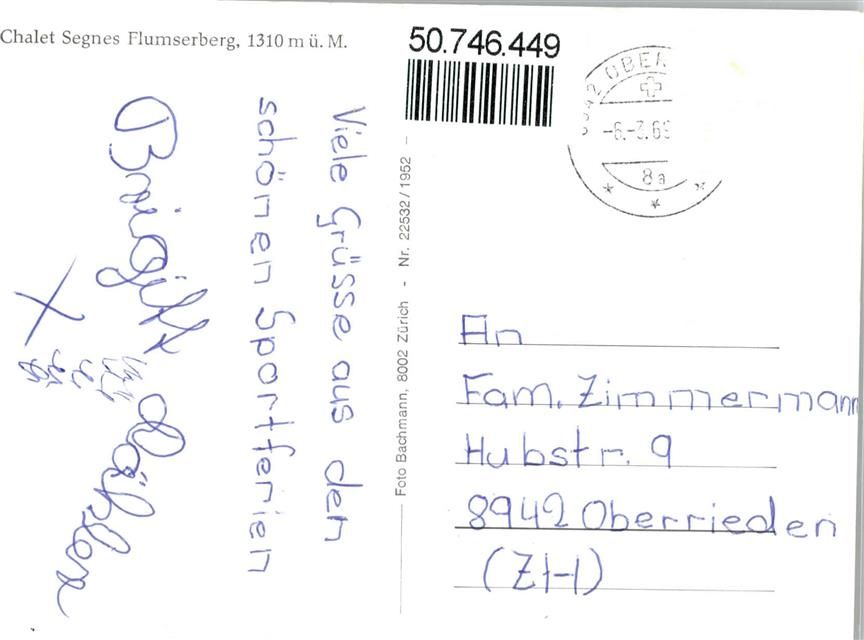 Chalet Segnes Flumserberg, 1310 m ü. M.
50.746.449
Viele Grüsse aus den
schönen Sportferien
Brigitt
Foto Bachmann, 8002 Zürich - Nr. 22532/1952 -
8a
An
Fam. Zimmermann
Hubstr. 9
8942 Oberrieden
(ZH)